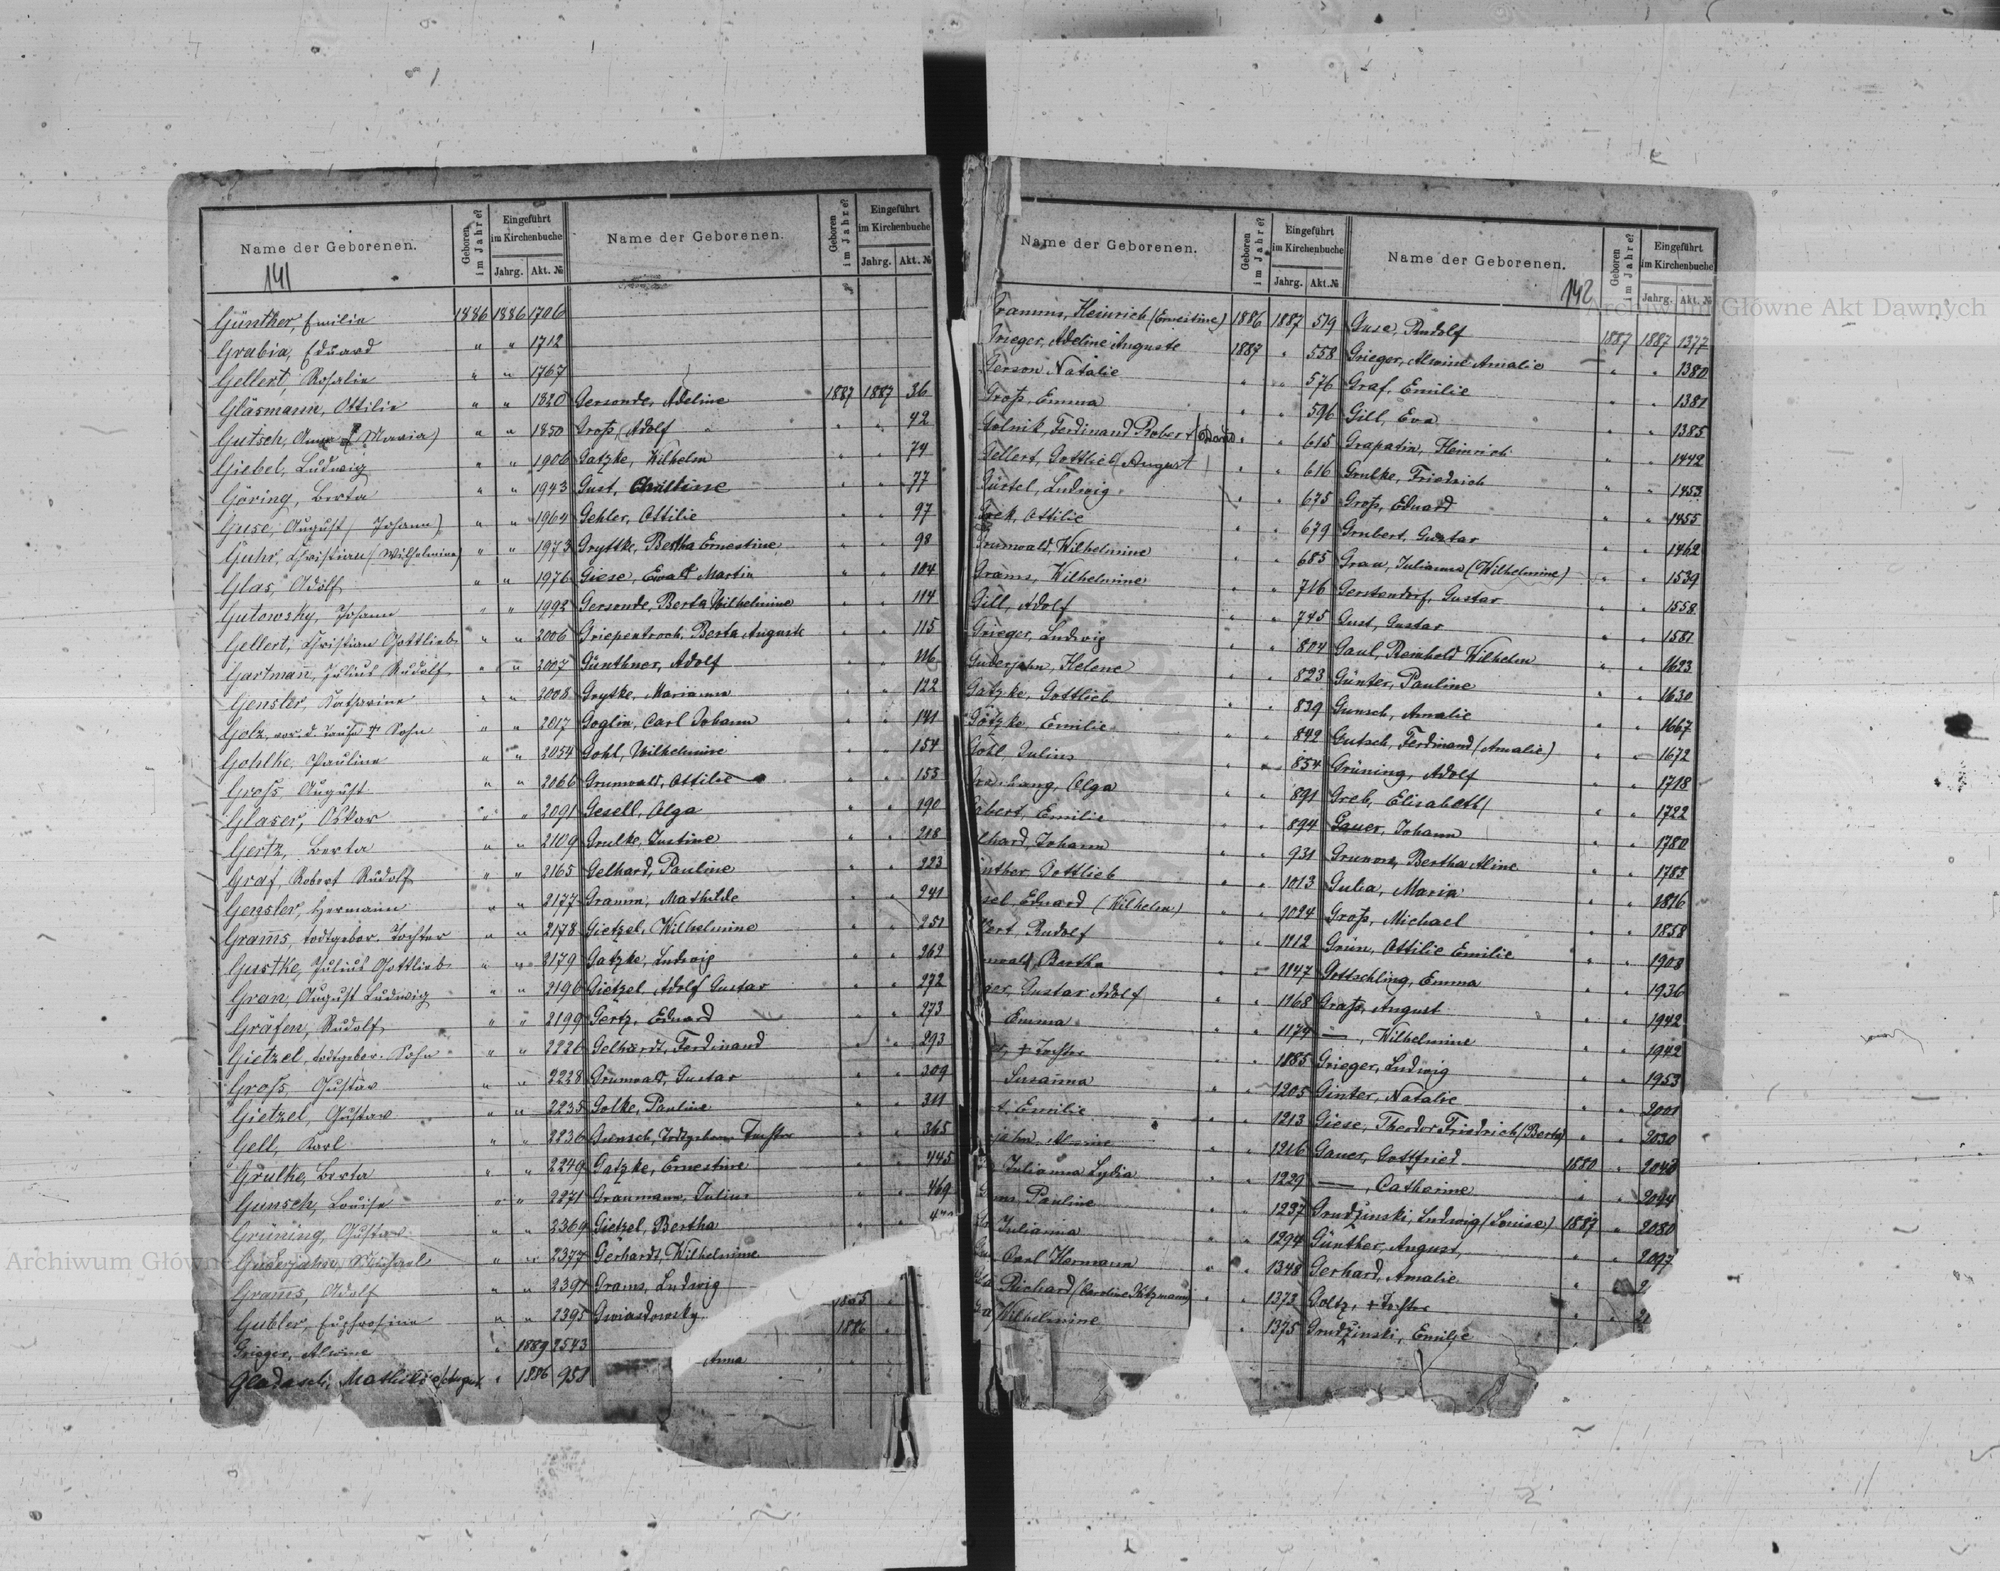 Name der Geborenen.
Geboren im Jahre?
Eingeführt im Kirchenbuche
Jahrg. Akt. №
Name der Geborenen.
Geboren im Jahre?
Eingeführt im Kirchenbuche
Jahrg. Akt. №
141
Günther, Emilie 1886 1886 1706
Grabia, Eduard " " 1712
Gellert, Rosalie " " 1767
Gläsmann, Ottilie " " 1820
Gutsch, Anna (Maria) " " 1850
Giebel, Ludwig " " 1906
Göring, Berta " " 1943
Guse, August (Johann) " " 1964
Guhr, Christian (Wilhelmine) " " 1973
Glas, Adolf " " 1976
Gutowsky, Johann " " 1992
Gellert, Christian Gottlieb " " 2006
Gartmann, Julius Rudolf " " 2007
Gensler, Katharina " " 2008
Golz, vor. d. Taufe † Sohn " " 2017
Gohlke, Pauline " " 2054
Groß, August " " 2066
Glaser, Oskar " " 2091
Gertz, Berta " " 2109
Graf, Robert Rudolf " " 2165
Gensler, Hermann " " 2177
Grams, todtgebor. Tochter " " 2178
Gustke, Julius Gottlieb " " 2179
Gran, August Ludwig " " 2196
Gräfen, Rudolf " " 2199
Gietzel, todtgebor. Sohn " " 2226
Groß, Gustav " " 2228
Gietzel, Gustav " " 2235
Gell, Karl " " 2236
Grulke, Berta " " 2249
Gunsch, Louise " " 2271
Grüning, Gustav " " 2369
Guderjahn, Michael " " 2377
Grams, Adolf " " 2391
Gubler, Euphrosine " " 2395
Grieger, Alwine " 1889 2543
Gladasch, Mathilde " 1886 958
Gersonde, Adeline 1887 1887 36
Groß, (Adolf " " 42
Gatzke, Wilhelm " " 74
Gust, " " 77
Gehler, Ottilie " " 97
Gryttke, Bertha Ernestine " " 98
Giese, Ewald Martin " " 104
Gersonde, Berta Wilhelmine " " 114
Griepentroch, Berta Auguste " " 115
Günthner, Adolf " " 116
Grytke, Marianna " " 122
Goglin, Carl Johann " " 141
Gohl, Wilhelmine " " 154
Grunwald, Ottilie " " 153
Gesell, Olga " " 190
Grulke, Justine " " 218
Gelhard, Pauline " " 223
Gramm, Mathilde " " 241
Gietzel, Wilhelmine " " 251
Gatzke, Ludwig " " 262
Gietzel, Adolf Gustav " " 272
Gertz, Eduard " " 273
Gelhardt, Ferdinand " " 293
Grunwald, Gustav " " 309
Golke, Pauline " " 311
Gunsch, Todtgeborne Tochter " " 365
Gatzke, Ernestine " " 445
Graumann, Julius " " 469
Gietzel, Bertha " "
Gerhardt, Wilhelmine
Grams, Ludwig
Gwiasdowsky 1885 "
1886 "
Anna " "
Name der Geborenen.
Geboren im Jahre?
Eingeführt im Kirchenbuche
Jahrg. Akt. №
Name der Geborenen.
Geboren im Jahre?
Eingeführt im Kirchenbuche
Jahrg. Akt. №
142
Gramms, Heinrich (Ernestine) 1886 1887 519
Grieger, Adeline Auguste 1887 " 558
Gerson Natalie " " 576
Groß, Emma " " 596
Golnik, Ferdinand Robert " 615
Gellert, Gottlieb (August) " " 616
Gürtel, Ludwig " " 675
Ottilie " " 679
Grunwald, Wilhelmine " " 685
Grams, Wilhelmine " " 716
Gill, Adolf " " 745
Grieger, Ludwig " " 804
Guderjahn, Helene " " 823
Gatzke, Gottlieb " " 839
Götzke Emilie " " 842
Gohl Julius " " 854
Olga " " 891
bert, Emilie " " 894
lhard, Johann " " 931
nther, Gottlieb " " 1013
sel, Eduard (Wilhelm) " " 1024
lert, Rudolf " " 1112
nwald, Bertha " " 1147
ger, Gustav Adolf " " 1168
Emma " " 1174
† Tochter " " 1185
Susanna " " 1205
Emilie " " 1213
jahn, Alwine " " 1216
Julianna Lydia " " 1229
Pauline " " 1237
Julianna " " 1294
Carl Hermann " " 1348
Richard (Caroline Kitzmann) " " 1373
Wilhelmine " 1375
Guse, Rudolf 1887 1887 1377
Grieger, Alwine Amalie " " 1380
Graf, Emilie " " 1381
Gill, Eva " " 1385
Grapatin, Heinrich " " 1442
Grulke, Friedrich " " 1453
Groß, Eduard " " 1455
Grubert, Gustav " " 1462
Grau, Julianna (Wilhelmine) " " 1539
Gerstendorf, Gustav " " 1558
Gust, Gustav " " 1581
Gaul, Reinhold Wilhelm " " 1623
Günter, Pauline " " 1630
Gunsch, Amalie " " 1667
Gutsch, Ferdinand (Amalie) " " 1672
Grüning, Adolf " " 1718
Greb, Elisabeth " " 1722
Gauer, Johann " " 1780
Bertha Aline " " 1783
Maria " " 1816
Groß, Michael " " 1858
Grün, Ottilie Emilie " " 1908
Gottschling, Emma " " 1936
Graß, August " " 1942
— , Wilhelmine " " 1942
Grieger, Ludwig " " 1953
Ginter, Natalie " " 2001
Giese, Theodor Friedrich (Berta) " " 2030
Gauer, Gottfried 1880 " 2040
— , Catharine " " 2044
Grudzinski, Ludwig (Louise) 1887 " 2080
Günther, August " " 2097
Gerhard, Amalie " "
Goltz, † Tochter " "
Grudzinski, Emilie
Archiwum Główne Akt Dawnych
Archiwum Główne